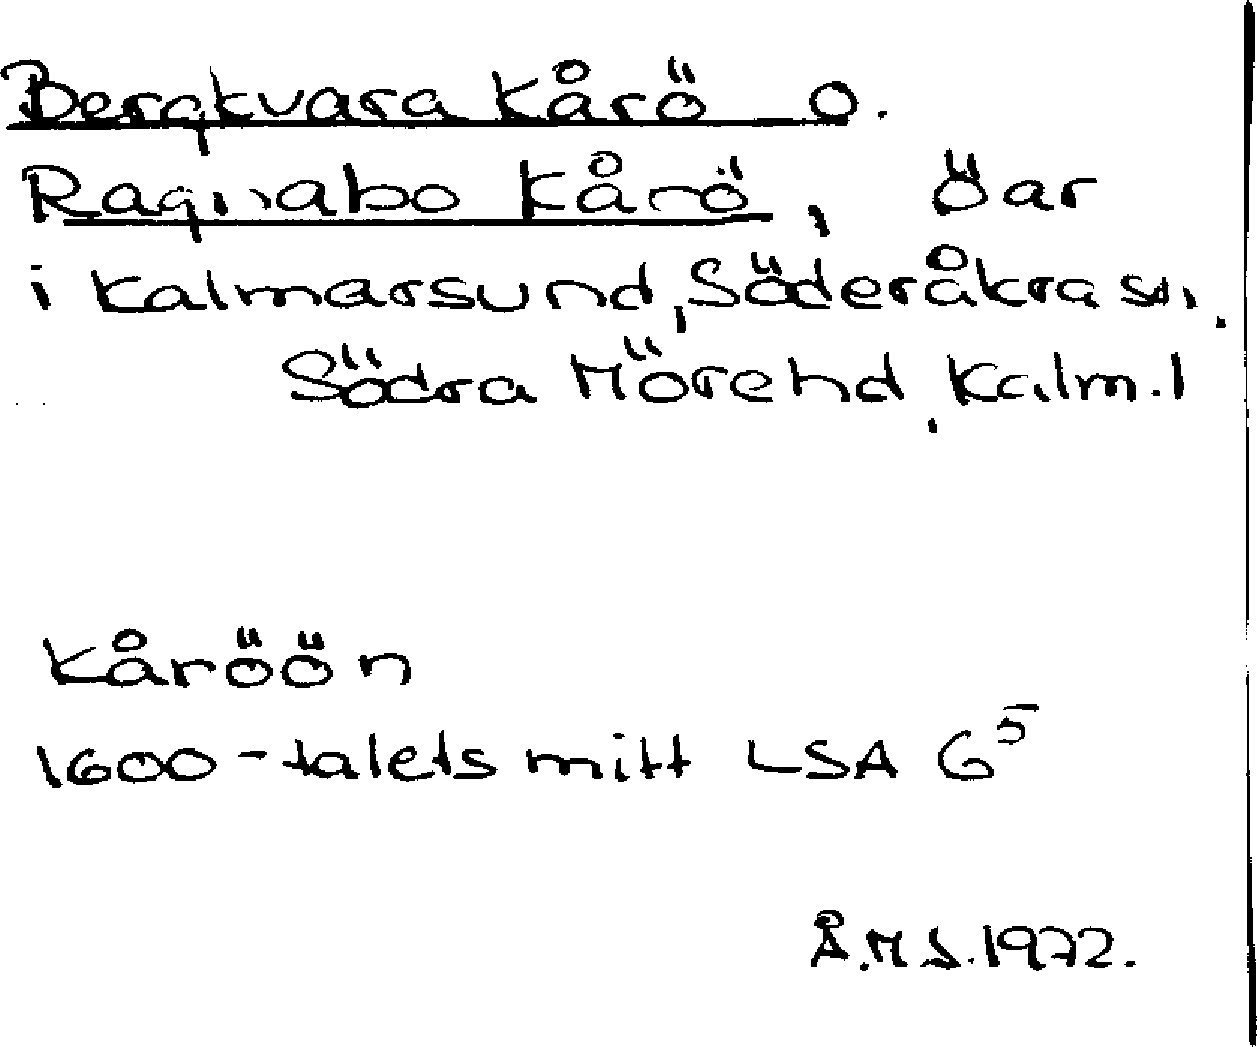 Bergkvara Kårö o.
Ragnabo Kårö, öar
i Kalmarsund, Söderåkra sn,
Södra Möre hd, Kalm. l
Kåröön
1600-talets mitt LSA G⁵
Å.M.S. 1972.